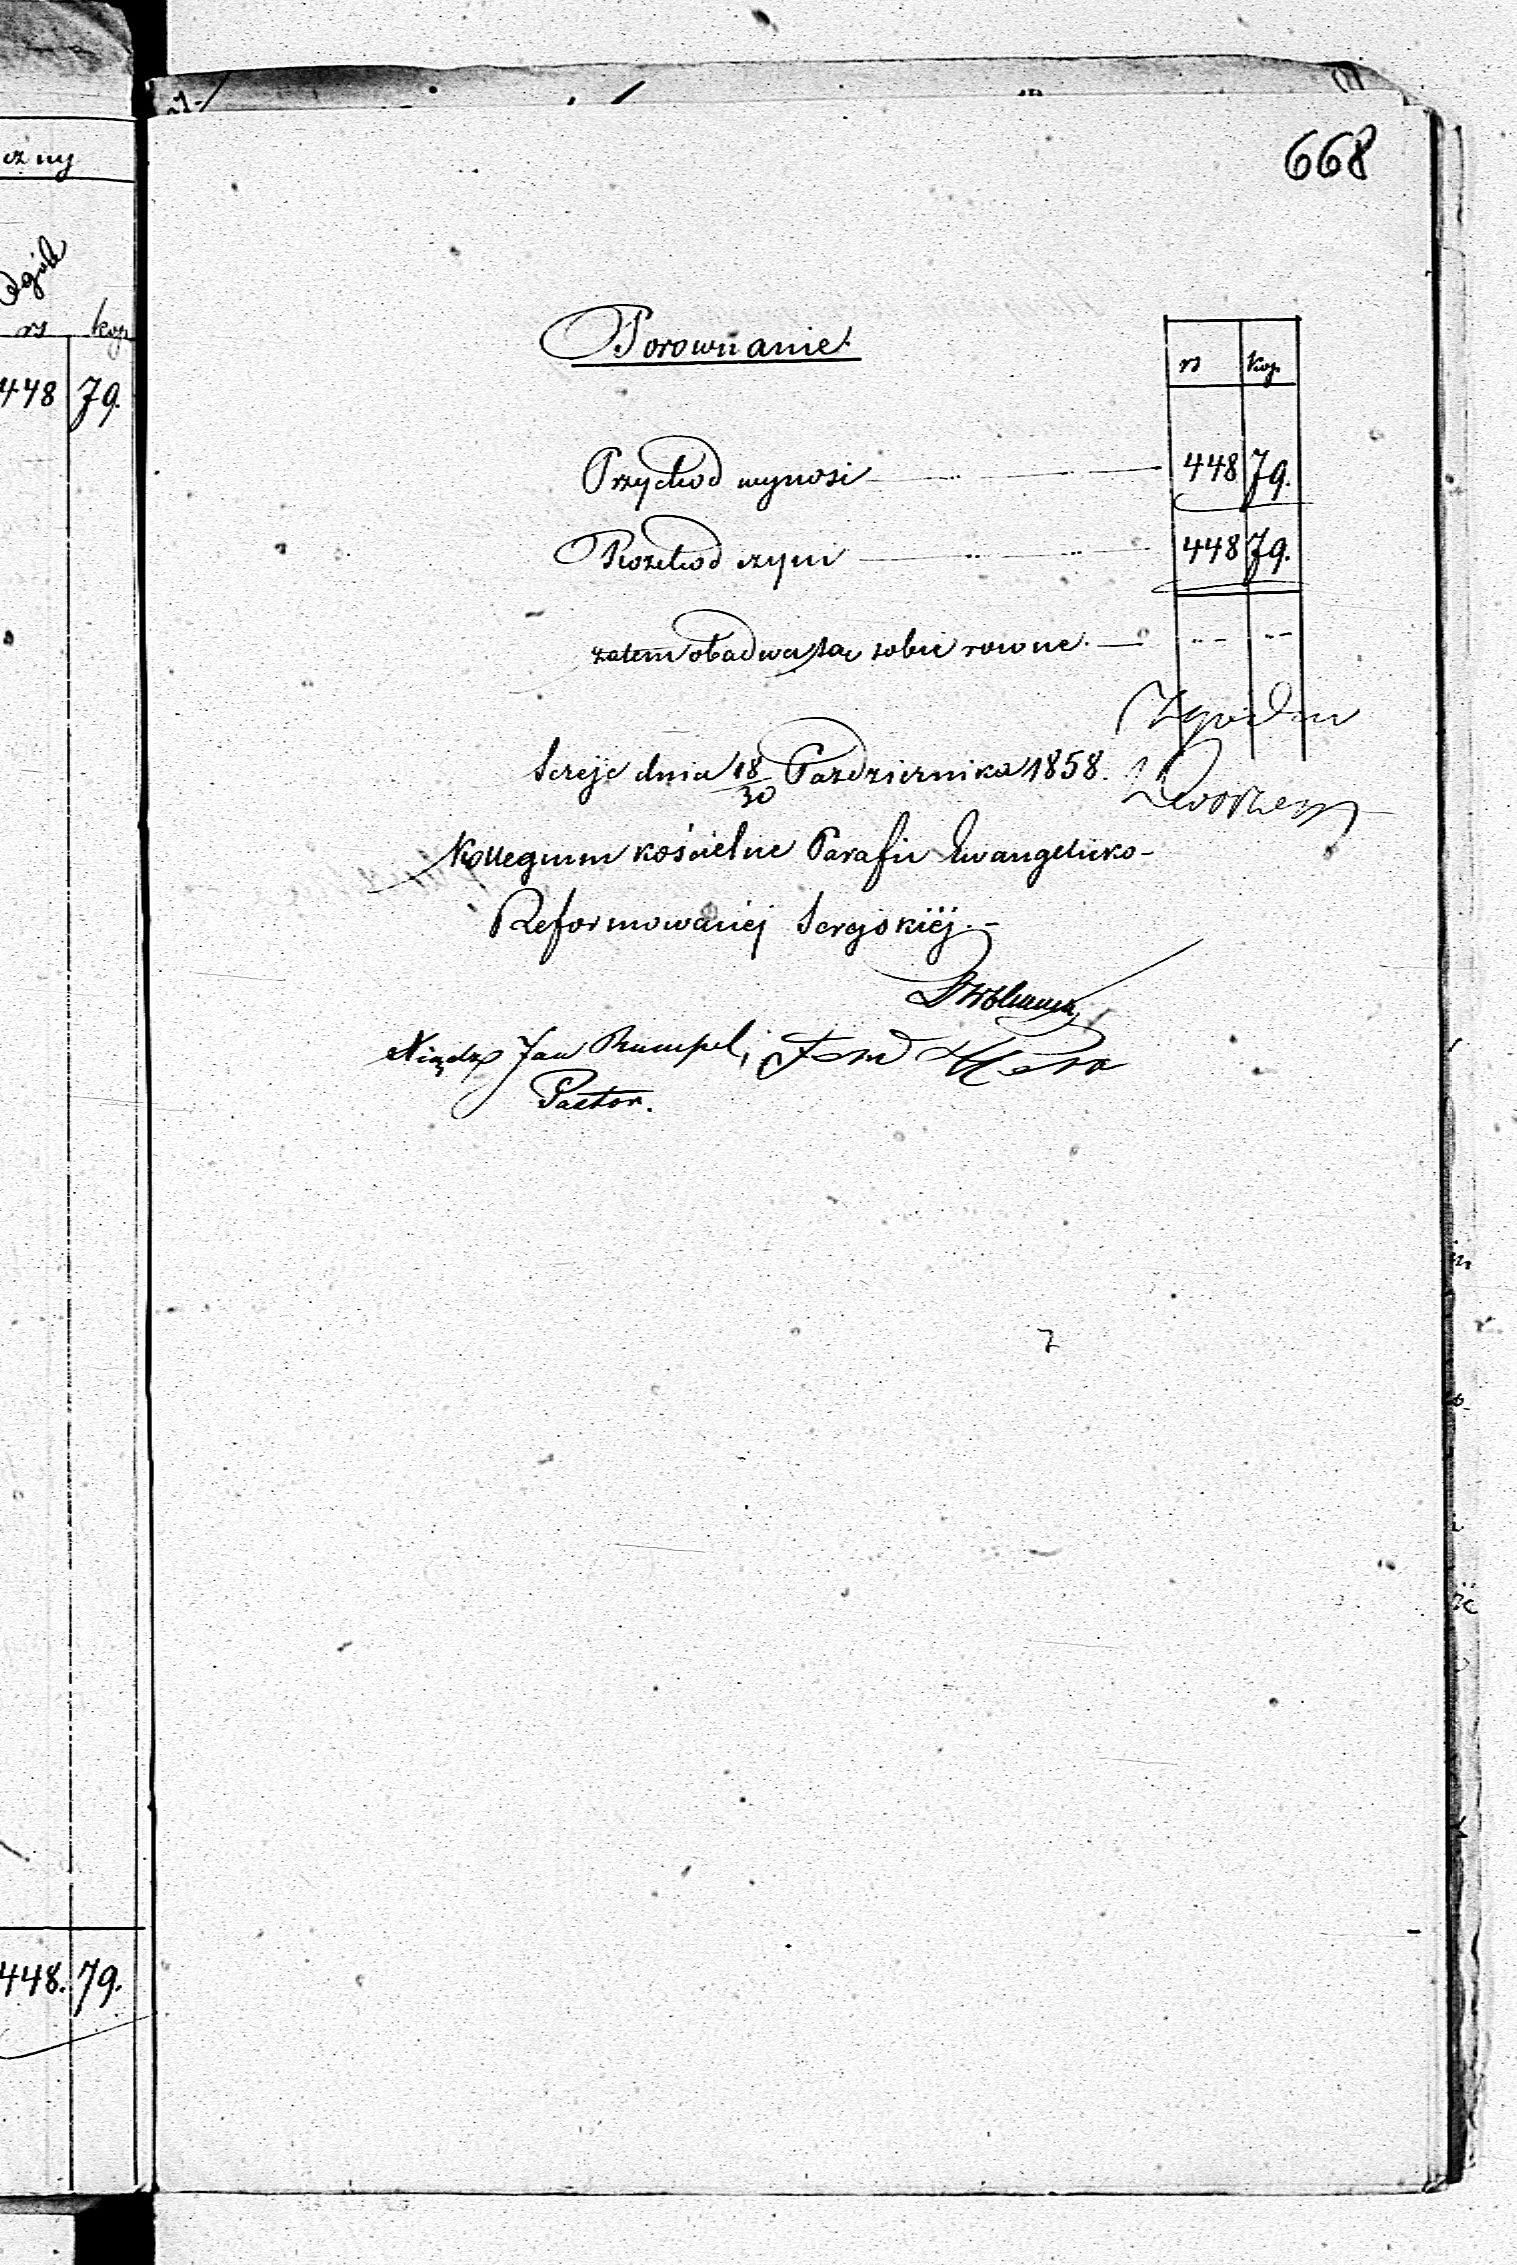 czny
Ogół
rs kop
448 79.
448. 79.
668
Porownanie.
rs kop.
Przychod wynosi 448 79.
Rozchod czyni 448 79.
zatem obadwa są sobie rowne.
Sereje dnia 18/30 Pazdziernika 1858.
Kollegium kościelne Parafii Ewangelicko-
Reformowanej Serejskiéj.
Xiądz Jan Rumpel,
Pastor.